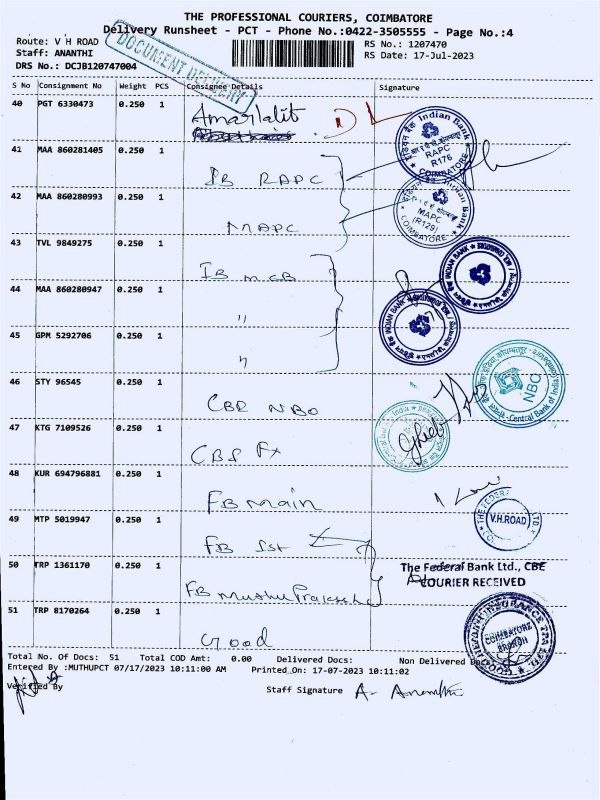 THE PROFESSIONAL COURIERS, COIMBATORE
Delivery Runsheet - PCT - Phone No.:0422-3505555 - Page No.:4
Route: V H ROAD
RS No.: 1207470
Staff: ANANTHI
RS Date: 17-Jul-2023
DRS No.: DCJB120747004
DOCUMENT DELIVERY
S No Consignment No Weight PCS Consignee Details Signature
40 PGT 6330473 0.250 1 Amarlalit DL
41 MAA 860281405 0.250 1 IB RAPC
Indian Bank
RAPC
R176
COIMBATORE
42 MAA 860280993 0.250 1 MAPC
Indian Bank
MAPC
(R129)
COIMBATORE
43 TVL 9849275 0.250 1 IB MCB
INDIAN BANK
44 MAA 860280947 0.250 1 "
INDIAN BANK
45 GPM 5292706 0.250 1 "
46 STY 96545 0.250 1 CBE NBO
NBO
Central Bank of India
47 KTG 7109526 0.250 1 CBI Fx
48 KUR 694796881 0.250 1 FB Main
THE FEDERAL
V.H.ROAD
49 MTP 5019947 0.250 1 FB Ist
50 TRP 1361170 0.250 1 FB Muthu
The Federal Bank Ltd., CBE
COURIER RECEIVED
51 TRP 8170264 0.250 1 Good
COIMBATORE
BRANCH
Total No. Of Docs: 51 Total COD Amt: 0.00 Delivered Docs: Non Delivered Docs:
Entered By :MUTHUPCT 07/17/2023 10:11:00 AM Printed On: 17-07-2023 10:11:02
Verified By
Staff Signature A. Ananthi